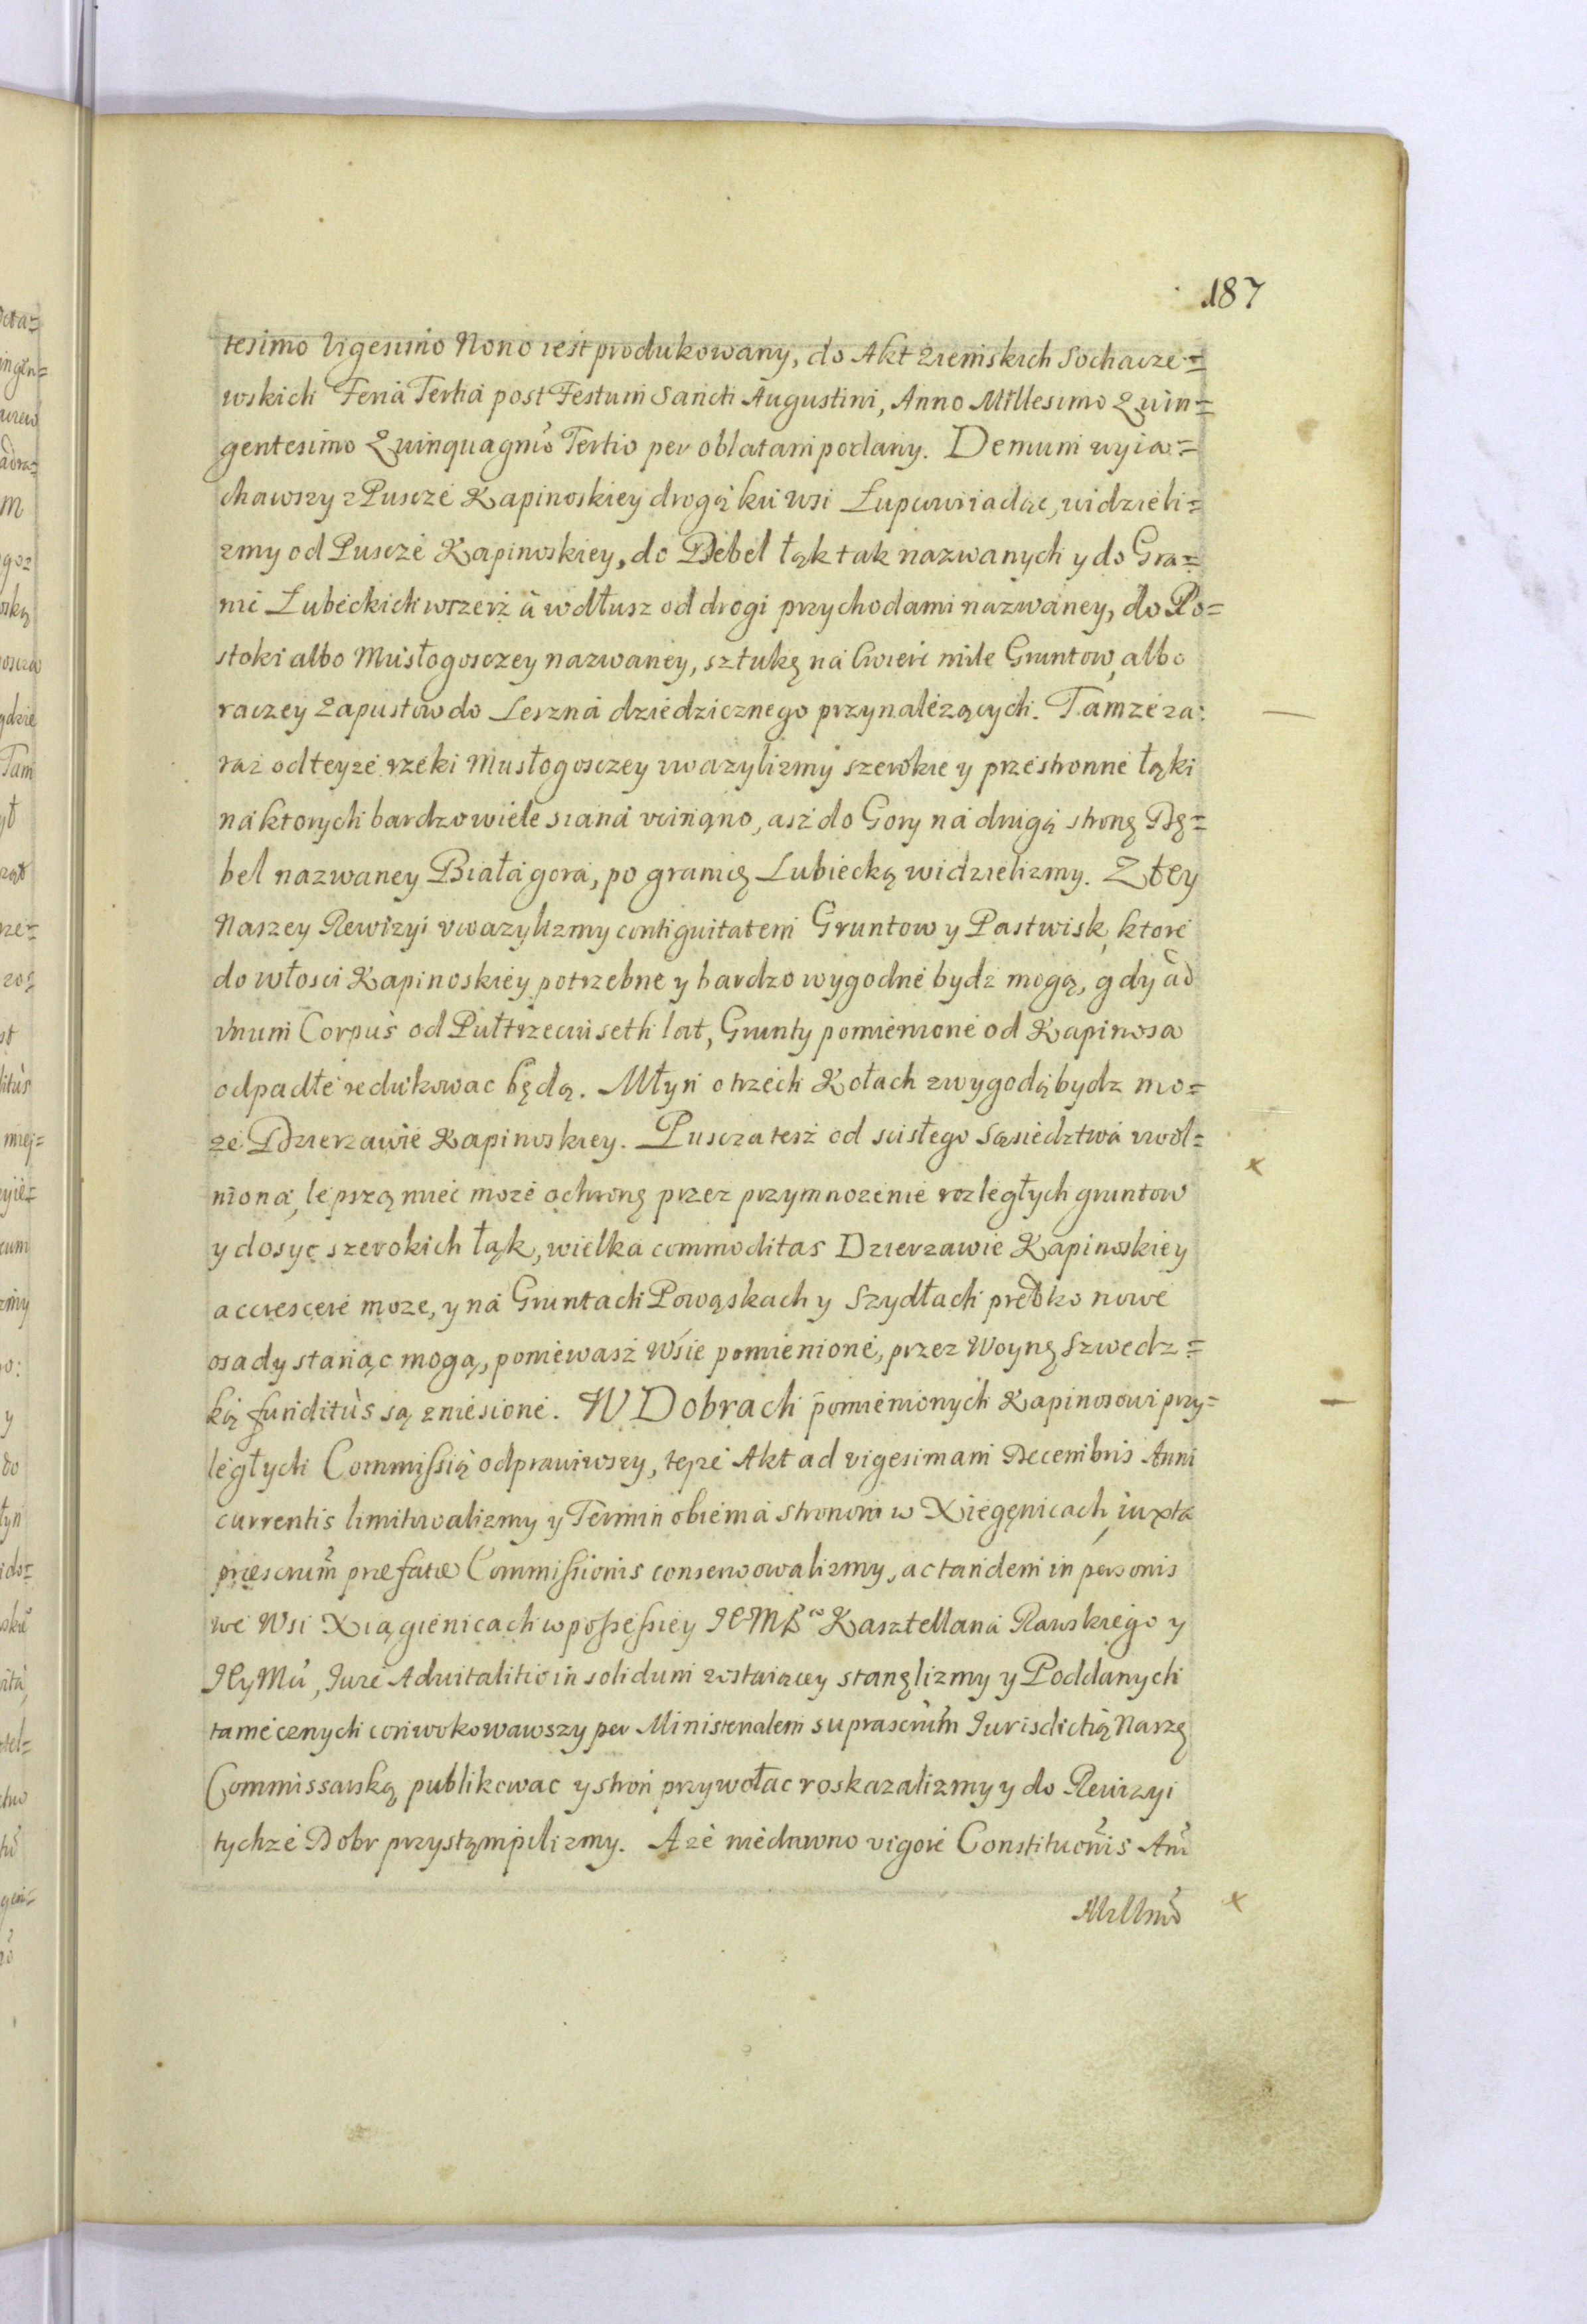 187
tesimo Vigesimo Nono iest produkowany, do Akt Ziemskich Sochacze=
wskich Feria Tertia post Festum Sancti Augustini, Anno Millesimo Quin=
gentesimo Quinquagmo Tertio per oblatam podany. Demum wyia=
chawszy z Puscze Kapinoskiey drogą ku wsi Łupuwiiadąc, widzieli=
zmy od Puscze Kapinoskiey, do Debel łąk tak nazwanych y do Gra=
nic Lubeckich wrzerż a wdłusz od drogi przychodami nazwaney, do Po=
stoki albo Musłogosczey nazwaney, sztukę na Cwierc mile Gruntow, albo
raczey Zapustow do Leszna dziedzicznego przynalezących. Tamze za:
raz od teyze rzeki Musłogosczey uwazylizmy szerokie y przestronne łąki
na ktorych bardzo wiele siana urznąno, asz do Gory na drugą stronę Dę=
bel nazwaney Biała gora, po granicę Lubiecką widzielizmy. Z tey
Naszey Rewizyi uwazylizmy contiguitatem Gruntow y Pastwisk, ktore
do włosci Kapinoskiey potrzebne y bardzo wygodne bydz mogą, gdy ad
Unum Corpus od Pułtrzeciuseth lat, Grunty pomienione od Kapinosa
odpadłe redukowac będą. Młyn o trzech Kołach z wygodą bydz mo=
ze Dzierzawie Kapinoskiey. Puscza tesz od scisłego Sąsiedztwa uwol=
niona, lepszą miec moze ochronę przez przymnozenie rozległych gruntow
y dosyc szerokich łąk, wielka commoditas Dzierzawie Kapinoskiey
accrescere moze, y na Gruntach Powąskach y Szydłach prędko nowe
osady stanąc mogą, poniewasz Wsie pomienione, przez Woynę Szwedz=
ką funditus są zniesione. W Dobrach pomienionych Kapinosowi przy=
ległych Commissią odprawiwszy, tęze Akt ad vigesimam Decembris Anni
currentis limitowalizmy y Termin obiema stronom w Xięgęnicach, iuxta
præscrum præfatæ Commissionis conserwowalizmy, ac tandem in personis
we Wsi Xiągienicach w possessiey JEMPco Kasztellana Rawskiego y
JEyMci, Jure Advitalitio in solidum zostaiącey stanęlizmy y Poddanych
tamecznych conwokowawszy per Ministerialem suprascrum Jurisdictią Naszę
Commissarską publikowac y stron przywołac roskazalizmy y do Rewizyi
tychze Dobr przystąmpilizmy. A ze niedawno vigore Constitucnis Ani
Millmo